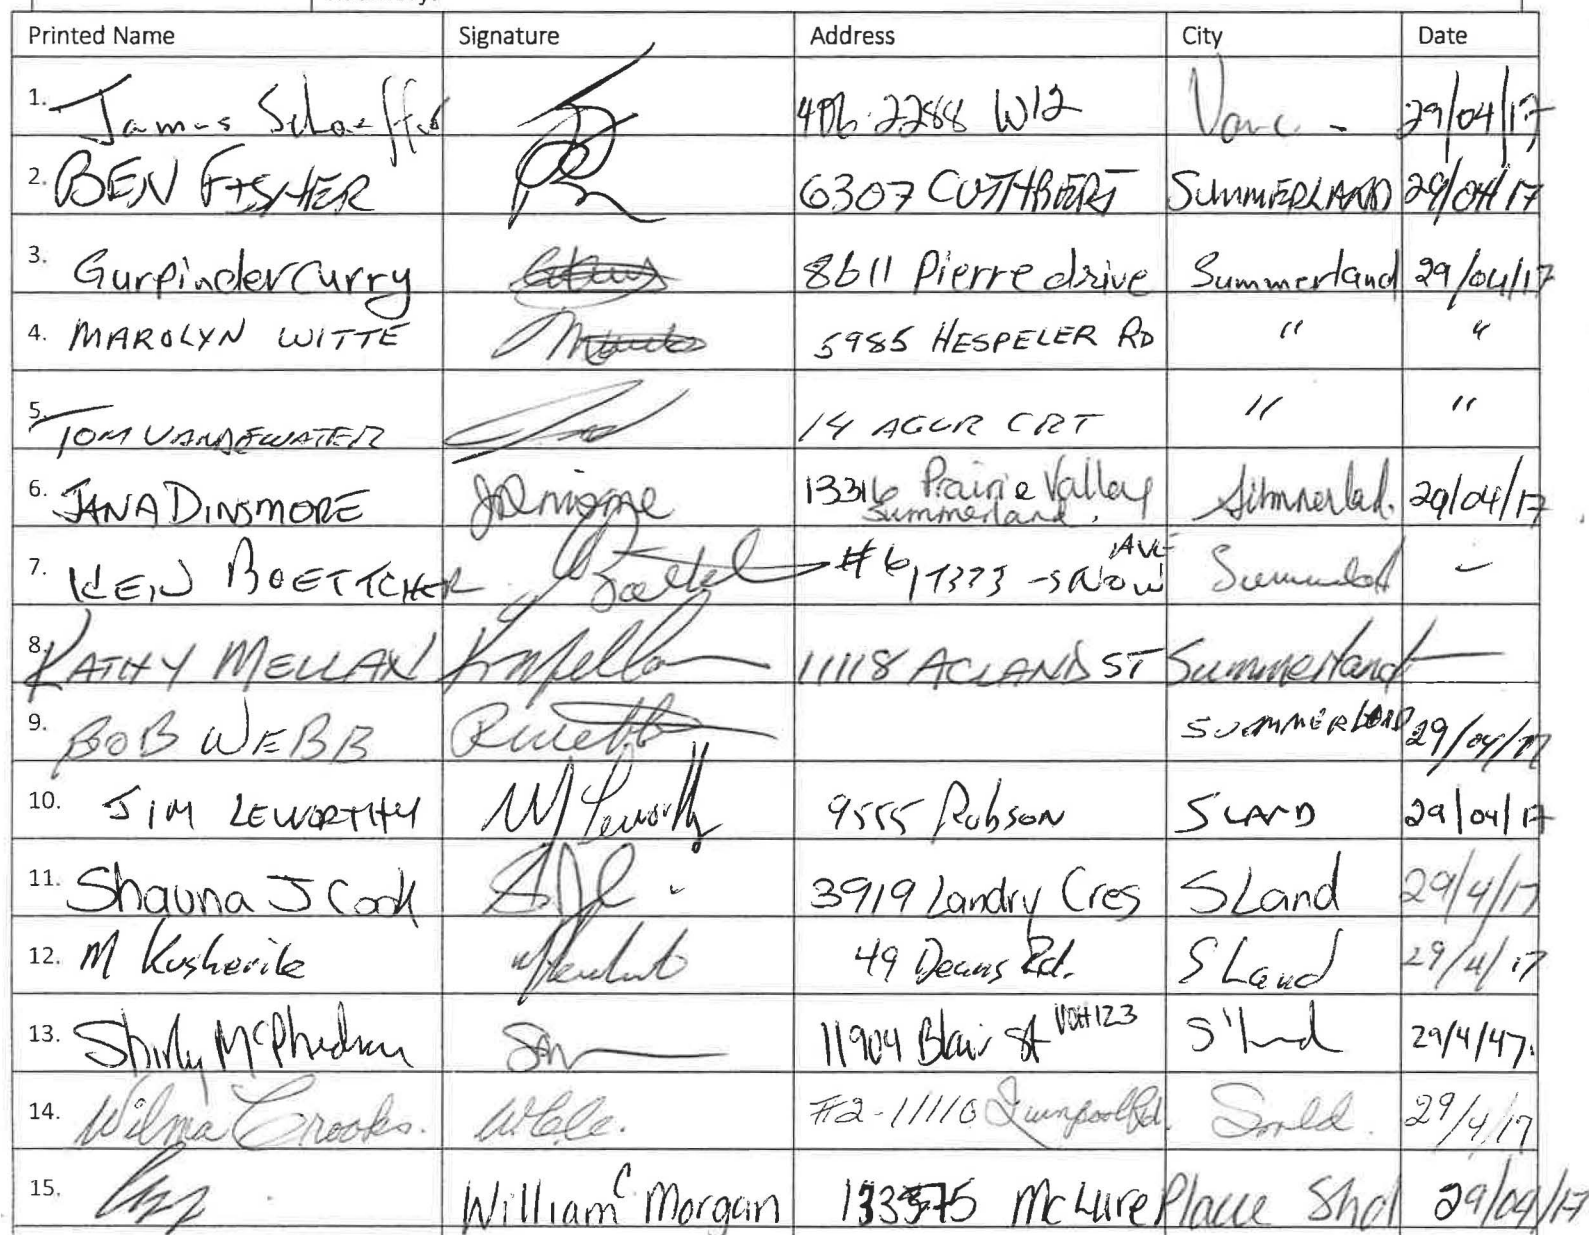 Printed Name Signature Address City Date
1. James Schaeffer 406-2288 W12 Vanc - 29/04/17
2. BEN FISHER 6307 CUTHBERT SUMMERLAND 29/04/17
3. Gurpinder Curry 8611 Pierre drive Summerland 29/04/17
4. MAROLYN WITTE 5985 HESPELER RD " "
5. TOM VANDEWATER 14 AGUR CRT " "
6. JANA DINSMORE 13316 Prairie Valley Summerland. 29/04/17
Summerland.
7. KEN BOETTCHER #6 17373 -SNOW AVE Summerland
8. KATHY MELLAN K Mellan 11118 ACLAND ST Summerland
9. BOB WEBB RWebb SUMMERLAND 29/04/17
10. JIM LEWORTHY Leworthy 9555 Robson SLAND 29/04/17
11. Shauna J Cook 3919 Landry Cres SLand 29/4/17
12. M Kusherik 49 Deans Rd. SLand 29/4/17
13. Shirly McPhedran 11904 Blair St V0H1Z3 S'land 29/4/47.
14. Wilma Crooks. #2-11110 Quinpool Rd. Smld. 29/4/17
15. William C Morgan 13375 McLure Place Slnd 29/04/17